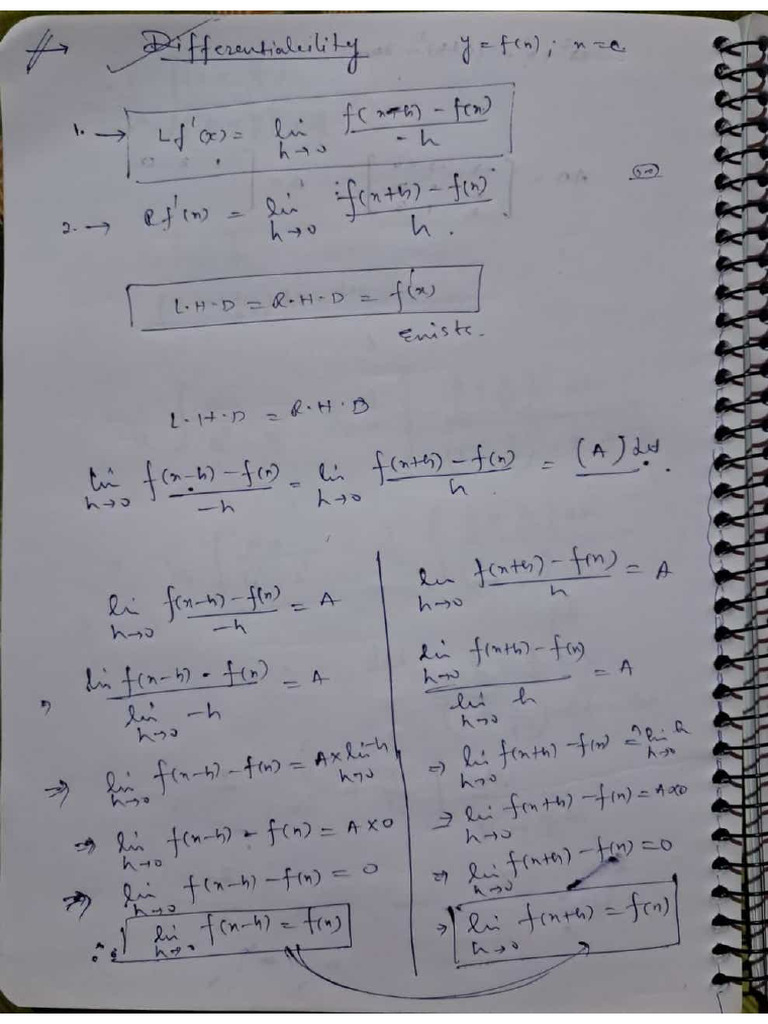 Differentiability y = f(x); x = c
1. → Lf'(x) = lim h→0 f(x-h) - f(x) / -h
2. → Rf'(x) = lim h→0 f(x+h) - f(x) / h.
L.H.D = R.H.D = f'(x)
Exists.
L.H.D = R.H.D
lim h→0 f(x-h) - f(x) / -h = lim h→0 f(x+h) - f(x) / h = (A)
lim h→0 f(x-h) - f(x) / -h = A
lim f(x-h) - f(x) / lim h→0 -h = A
⇒ lim h→0 f(x-h) - f(x) = A × lim h→0 -h
⇒ lim h→0 f(x-h) - f(x) = A × 0
⇒ lim h→0 f(x-h) - f(x) = 0
∴ lim h→0 f(x-h) = f(x)
lim h→0 f(x+h) - f(x) / h = A
lim h→0 f(x+h) - f(x) / lim h→0 h = A
⇒ lim h→0 f(x+h) - f(x) = A lim h→0 h
⇒ lim h→0 f(x+h) - f(x) = A×0
⇒ lim h→0 f(x+h) - f(x) = 0
⇒ lim h→0 f(x+h) = f(x)